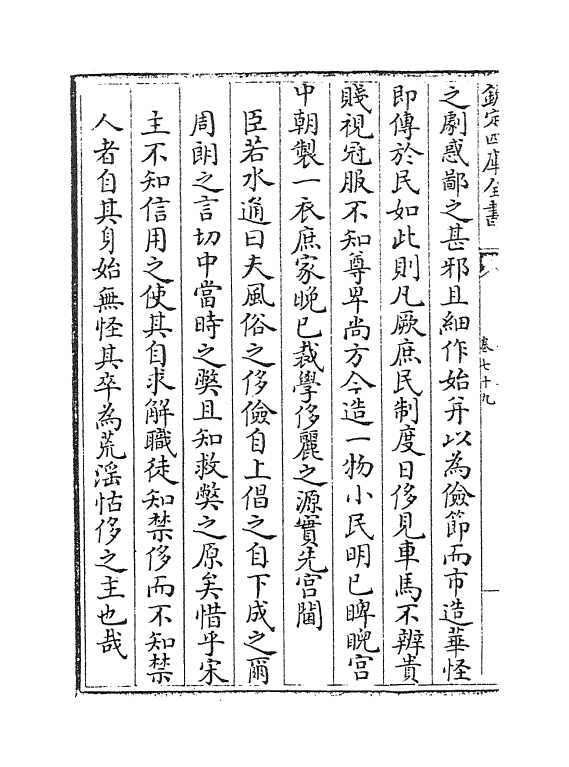 欽定四庫全書
卷七十九
之劇惑鄙之甚邪且細作始并以為儉節而市造華怪
即傳於民如此則凡厥庶民制度日侈見車馬不辨貴
賤視冠服不知尊卑尚方今造一物小民明已睥睨宮
中朝製一衣庶家晚已裁學侈麗之源實先宮閫
臣若水通曰夫風俗之侈儉自上倡之自下成之爾
周朗之言切中當時之弊且知救弊之原矣惜乎宋
主不知信用之使其自求解職徒知禁侈而不知禁
人者自其身始無怪其卒為荒滛怙侈之主也哉